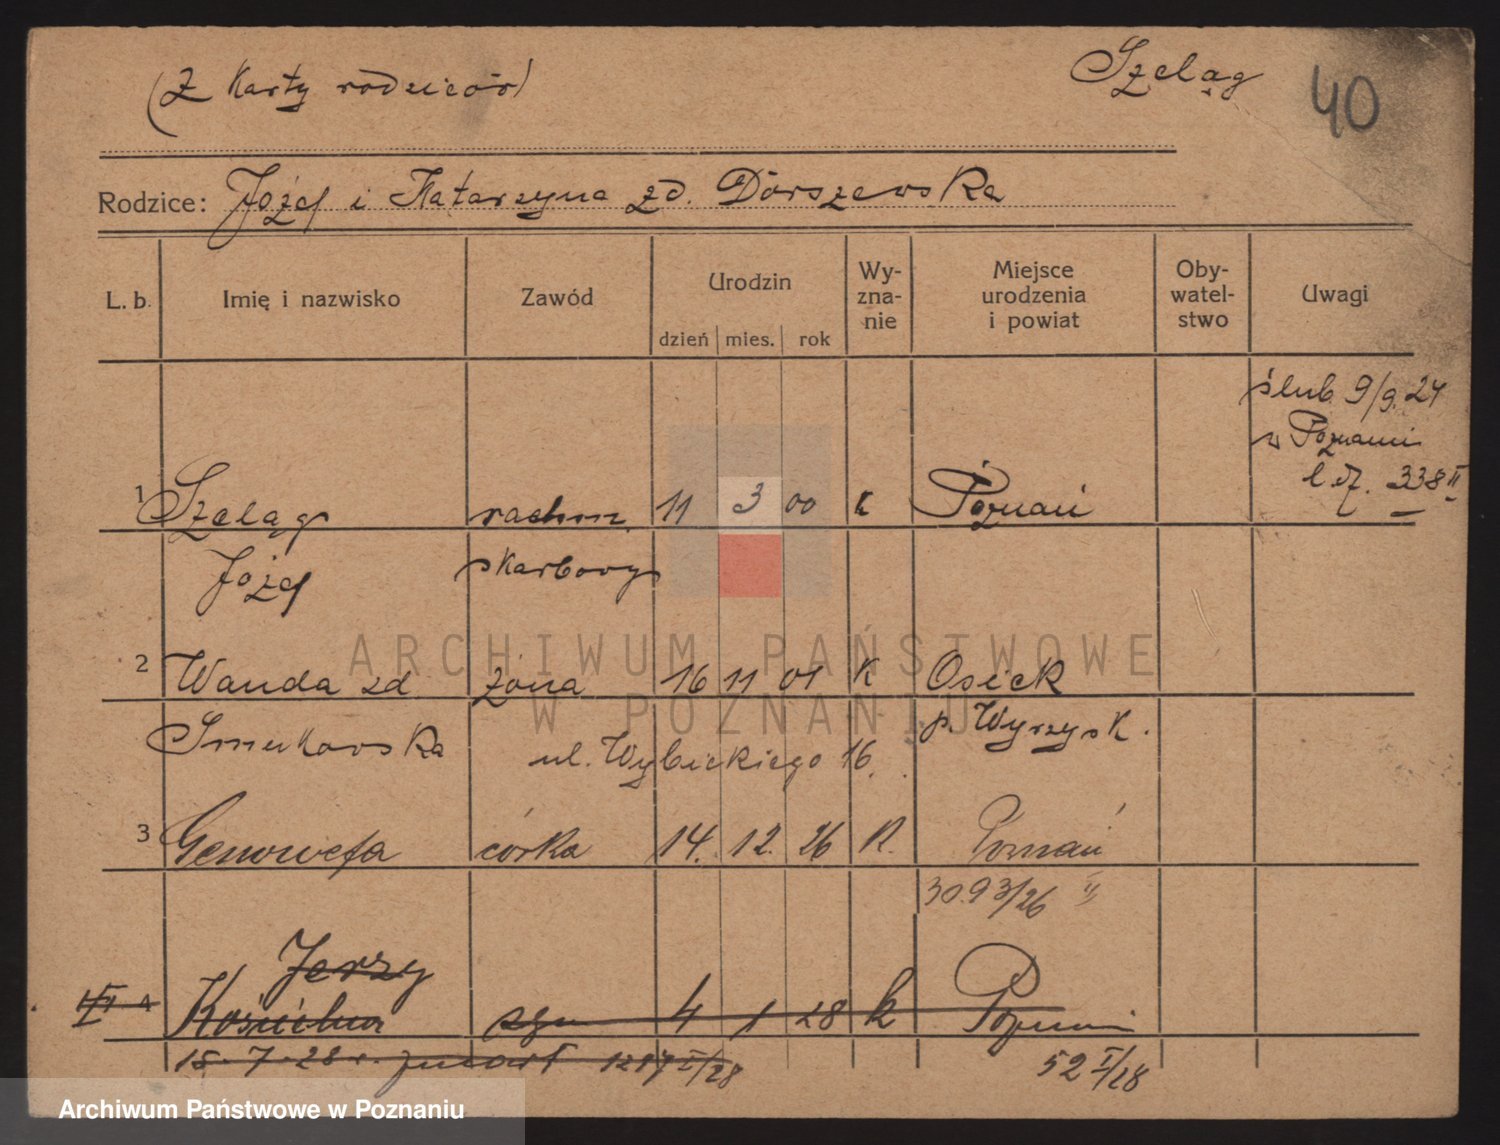 (z Karty rodziców)
Szeląg
40
Rodzice: Józef i Katarzyna zd. Dorszewska
L. b. Imię i nazwisko Zawód Urodzin dzień mies. rok Wy-zna-nie Miejsce urodzenia i powiat Oby-watel-stwo Uwagi
ślub 9/9. 24
w Poznaniu
338 II
1 Szeląg rachm. 11 3 00 k Poznań
Józef skarbowy
2 Wanda zd żona 16 11 01 K Osiek
Smukowska p. Wyrzysk.
ul. Wybickiego 16.
3 Genowefa córka 14. 12. 26 K. Poznań
3093/26 II
Jerzy
4 syn 4 1 28 k Poznań
15-7-28 r. zmarł 1217 I/28
52 I/28
ARCHIWUM PAŃSTWOWE
W POZNANIU
Archiwum Państwowe w Poznaniu